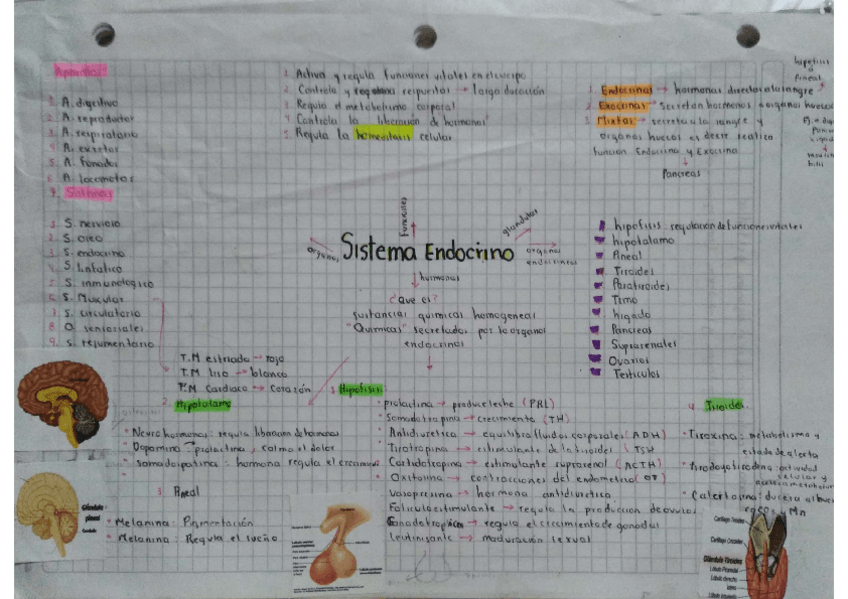 Aparatos
1. A. digestivo
2. A. reproductor
3. A. respiratorio
A. excretor
5. A. Fonador
6. A. locomotor
Sistemas
1. S. nervioso
2. S. oseo
3. S. endocrino
4. S. Linfatico
5. S. inmunologico
6. S. Muscular
7. S. circulatorio
8. O. sensoriales
9. S. tejumentario
T.M estriado → rojo
T.M liso → blanco
T.M cardiaco → corazón
1. Activa y regula funciones vitales en el cuerpo
2. Controla y respuestas → larga duración
3. Regula el metabolismo corporal
4. Controla la liberación de hormonas
5. Regula la homeostasis celular
hipofisis
Pineal
1. Endocrinas → hormonas directo a la sangre
2. Exocrinas → secretan hormonas a organos huecos
3. Mixtas → secreta a la sangre y
organos huecos es decir realiza
función Endocrina y Exocrina
Pancreas
Funciones
glandular
organos
Sistema Endocrino
organos
endocrinos
hormonas
¿Que es?
sustancias quimicas homogeneas
"Quimicas" secretadas por lo organos
endocrinos
hipofisis regulacion de funciones vitales
hipotalamo
Pineal
Tiroides
Paratiroides
Timo
higado
Pancreas
Suprarenales
Ovarios
Testiculos
2. Hipotalamo
Neuro hormonas: regula de hormonas
Dopamina → prolactina, calma el dolor
: hormona regula el crecimiento
3. Pineal
Melanina: Pigmentación
Melanina: Regula el sueño
Glándula
pineal
1. Hipofisis
prolactina → produce leche (PRL)
Somadotropina → crecimiento (TH)
Antidiuretica → equilibra fluidos corporales (ADH)
Tirotropina → estimulante de la tiroides (TSH
→ estimulante suprarenal (ACTH)
Oxitosina → contracciones del endometrio (OT)
Vasopresina → hormona antidiuretica
Foliculoestimulante → regula la produccion de ovulos
Gonadotropica → regula el crecimiento de gonadas
Leutinisante → maduración sexual
4. Tiroides
Tiroxina: metabolismo y
estado de alerta
actividad
celular y
Glándula Tiroides
Lóbulo Piramidal